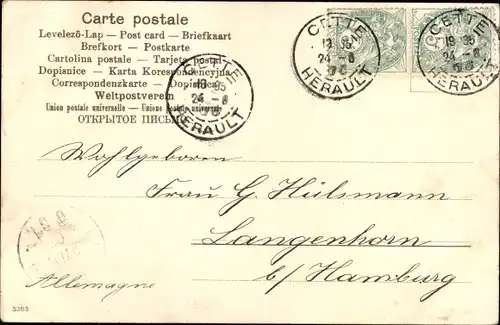 Carte postale
Levelező-Lap — Post card — Briefkaart
Brefkort — Postkarte
Cartolina postale — Tarjeta postal
Dopisnice - Karta Korespondencyjna
Correspondenzkarte — Dopisnica
Weltpostverein
Union postale universelle — Unione postale universale
ОТКРЫТОЕ ПИСЬМО
CETTE
24-8
HERAULT
CETTE
24-8
HERAULT
CETTE
24-8
HERAULT
Wohlgeboren
Frau G. Hülsmann
Langenhorn
b/Hamburg
Allemagne
5363